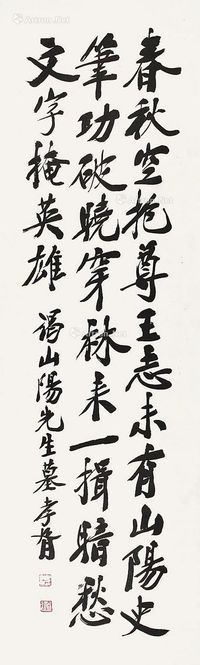 春秋空抱尊王志未有山陽史
筆功破曉穿林来一揖暗愁
文字掩英雄
謁山陽先生墓孝胥